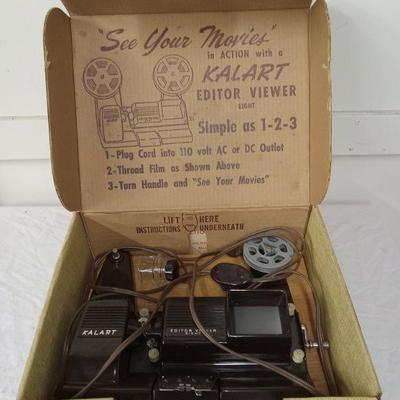 "See Your Movies"
in ACTION with a
KALART
EDITOR VIEWER
EIGHT
Simple as 1-2-3
1-Plug Cord into 110 volt AC or DC Outlet
2-Thread Film as Shown Above
3-Turn Handle and "See Your Movies"
LIFT HERE
INSTRUCTIONS UNDERNEATH
KALART
EDITOR VIEWER
EIGHT